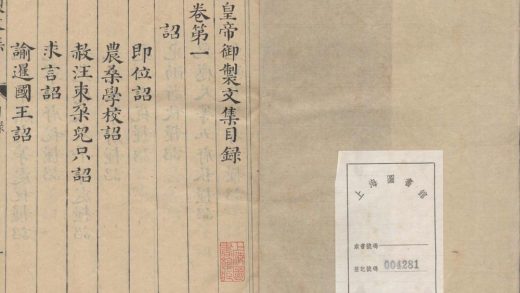 皇帝御製文集目録
卷第一
詔
即位詔
農桑學校詔
赦汪束朶兒只詔
求言詔
諭暹國王詔
上海圖書館
索書號碼
登記號碼 004281